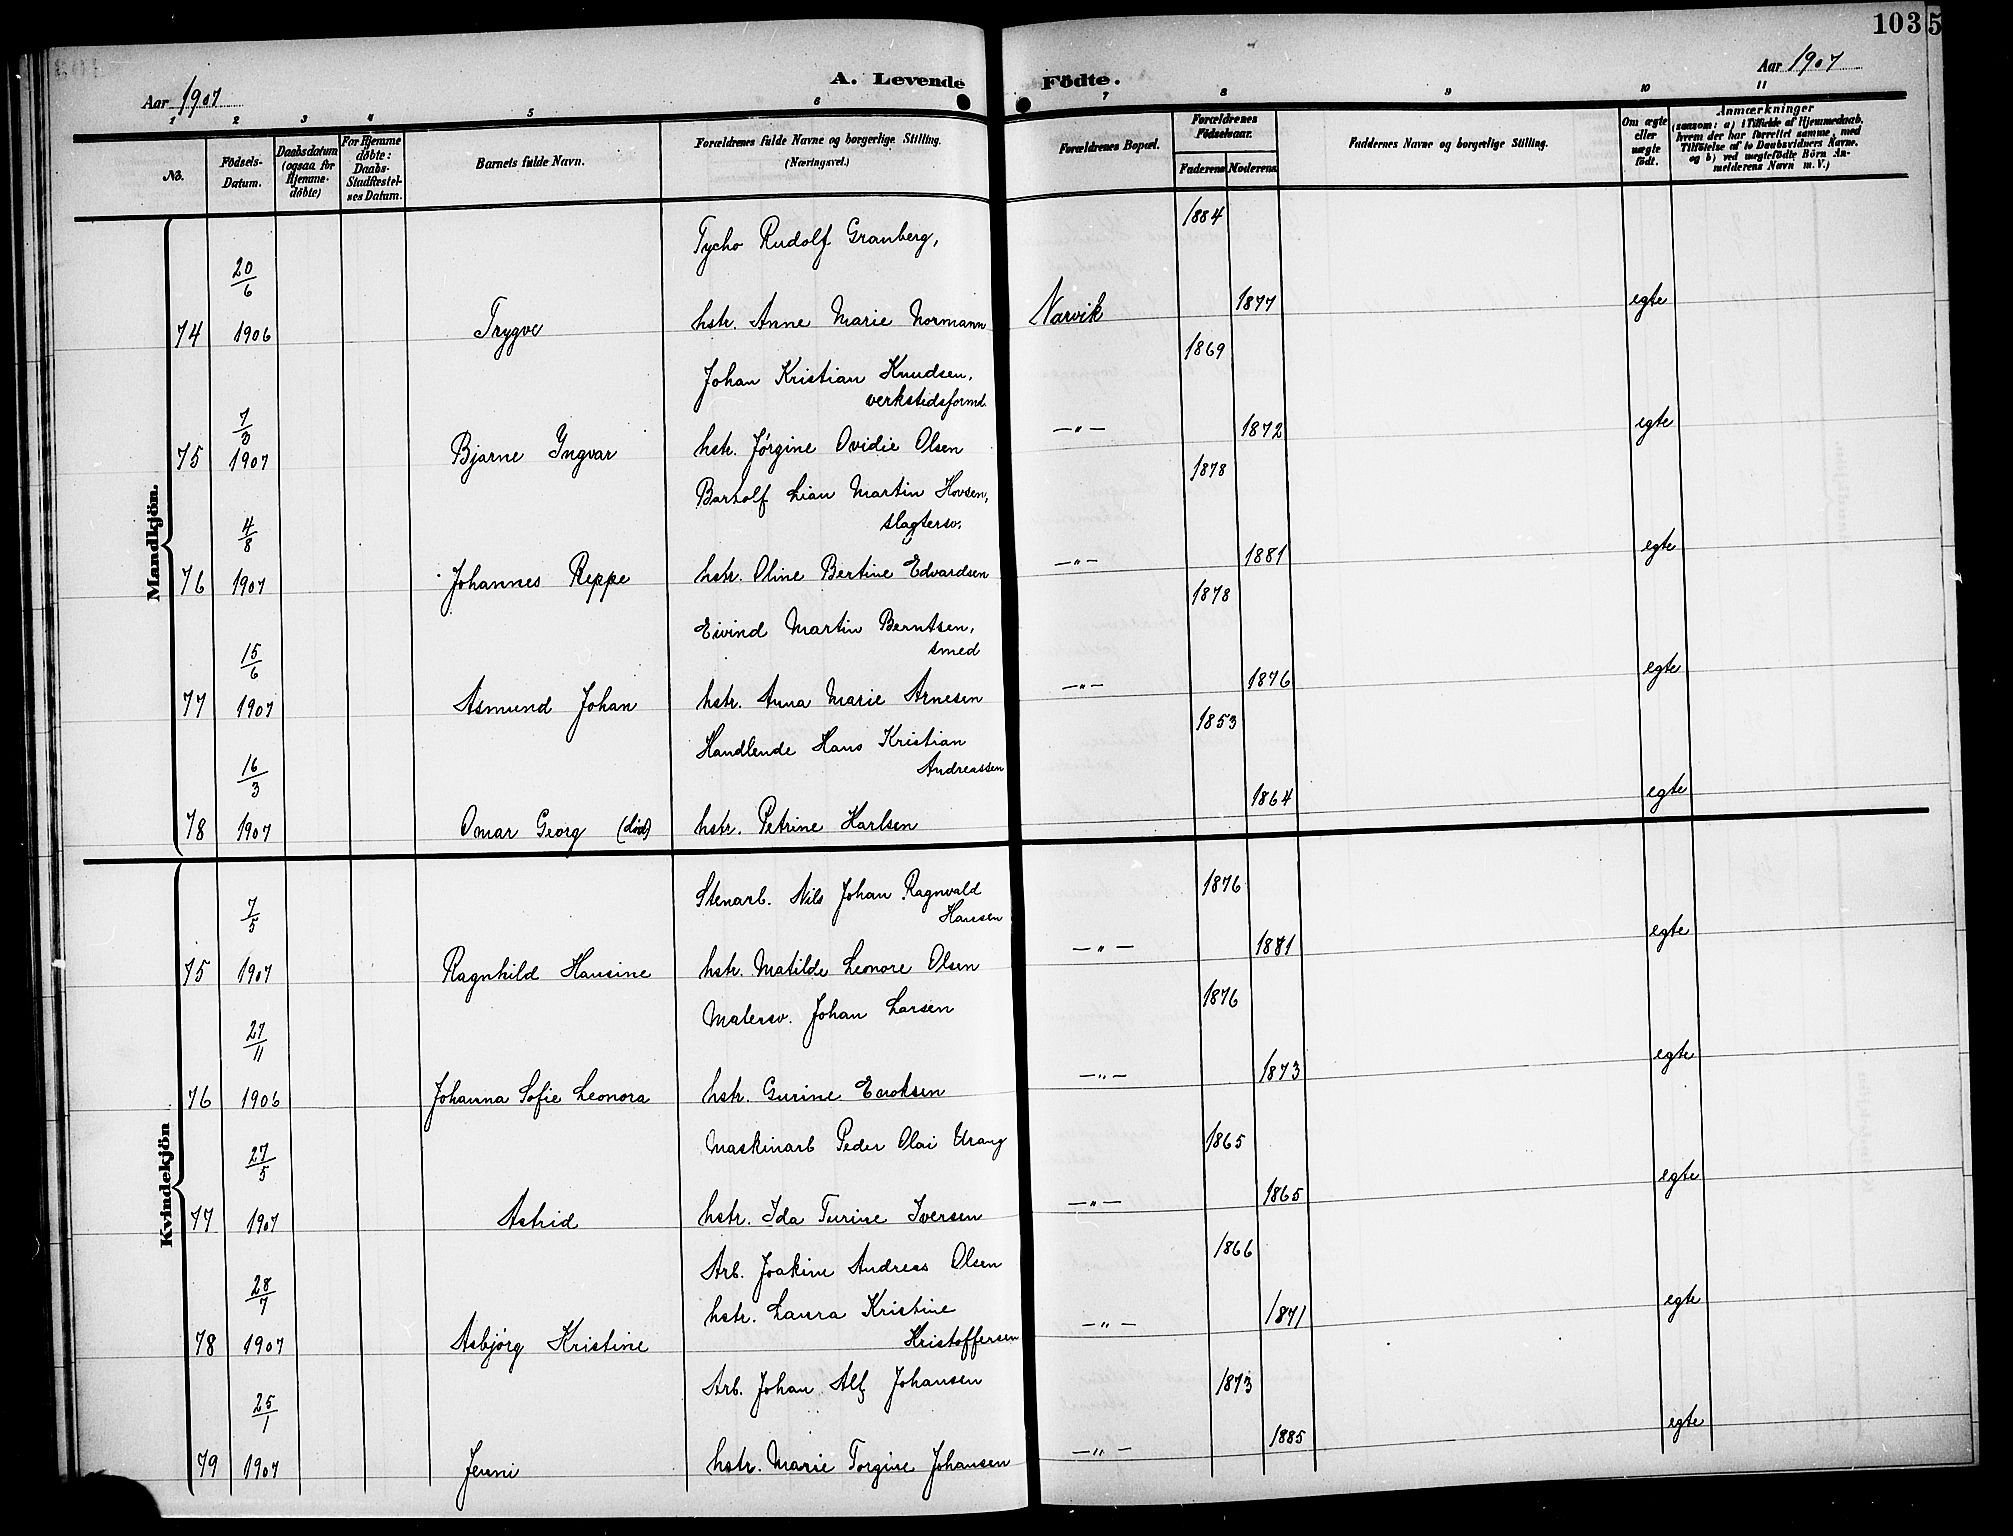 1035
A. Levende Födte.
Aar 1907
Aar 1907
1 2 3 4 5 6 7 8 9 10 11
No.
Födsels-Datum.
Daabsdatum (ogsaa for Hjemmedöbte)
For Hjemmedöbte: Daabs-Stadfæstelses Datum.
Barnets fulde Navn.
Forældrenes fulde Navne og borgerlige Stilling. (Næringsvei.)
Forældrenes Bopæl.
Forældrenes Födselsaar.
Faderens Moderens
Faddernes Navne og borgerlige Stilling.
Om ægte eller uægte födt.
Anmærkninger
(saasom: a) i Tilfælde af Hjemmedaab, hvem der har forrettet samme, med Tilföielse af to Daabsvidners Navne, og b) ved uægtefödte Börn Anmelderens Navn m. V.)
Mandkjön.
Tycho Rudolf Granberg, 1884
20/6
74 1906 Trygve hstr. Anne Marie Normann Narvik 1877 egte
1869
Johan Kristian Knudsen,
verkstedsformd.
7/3
75 1907 Bjarne Yngvar hstr. Jørgine Ovidie Olsen —"— 1872 egte
1878
Lian Martin Hovsen,
slagtersv.
4/8
76 1907 Johannes Reppe hstr. Oline Bertine Edvardsen —"— 1881 egte
1878
Eivind Martin Berntsen,
smed
15/6
77 1907 Asmund Johan hstr. Anna Marie Arnesen —"— 1876 egte
1853
Handlende Hans Kristian
Andreassen
16/3
78 1907 Omar Georg (død) hstr. Petrine Karlsen 1864 egte
Kvindekjön
Stenarb. Nils Johan Ragnvald 1876
Hansen
7/5
75 1907 Ragnhild Hansine hstr. Matilde Leonore Olsen —"— 1881 egte
Malersv. Johan Larsen 1876
27/11
76 1906 Johanna Sofie Leonora hstr. Gurine Enoksen —"— 1873 egte
Maskinarb Peder Olai Urang 1865
27/5
77 1907 Astrid hstr. Ida Turine Iversen —"— 1865 egte
Arb. Joakim Andreas Olsen 1866
28/7
hstr. Laura Kristine
78 1907 Asbjørg Kristine Kristoffersen —"— 1871 egte
Arb. Johan Alf Johansen 1873
25/1
79 1907 Jenni hstr. Marie Torgine Johansen —"— 1885 egte